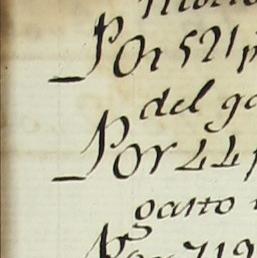 Por 521 p
del ga
Por 44 p
gasto
Por 719